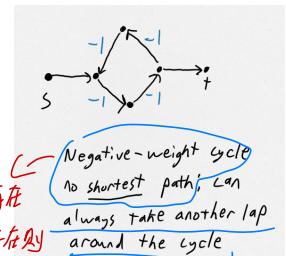 -1 -1
S t
-1 -1
Negative-weight cycle
no shortest path; can
在
always take another lap
在则
around the cycle